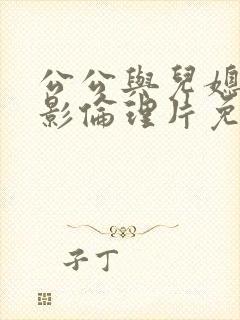 公公與兒媳
影倫理片免
子丁